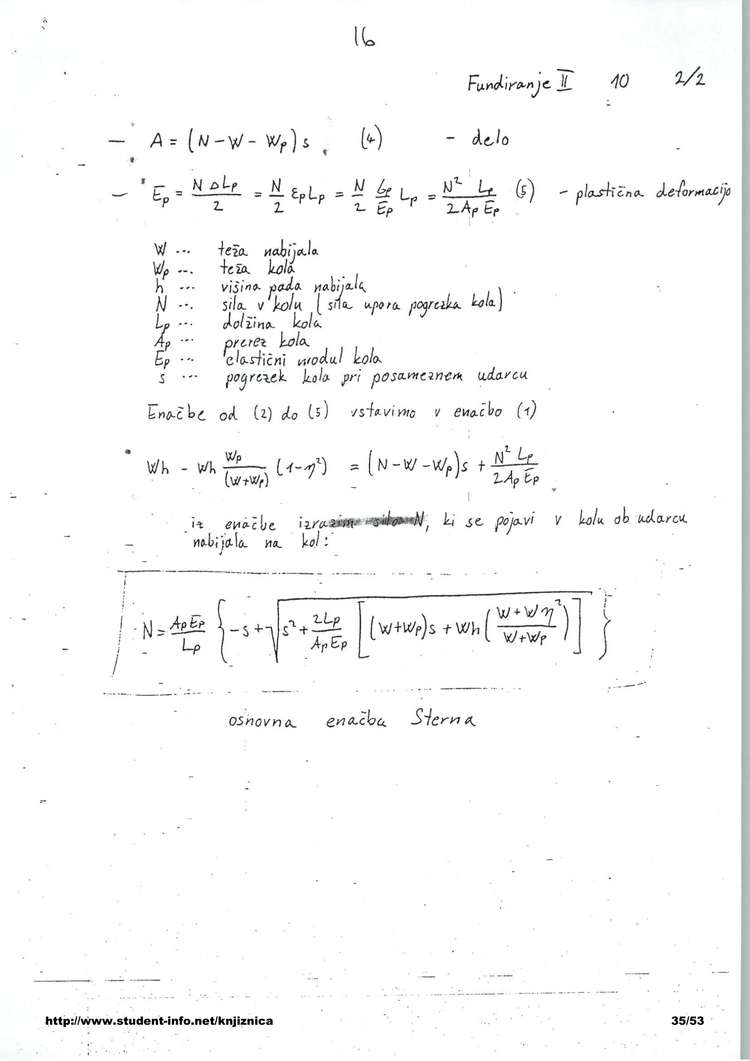 16
Fundiranje II 10 2/2
— A = (N - W - Wp) s (4) - delo
— Ep = N ΔLp / 2 = N/2 εp Lp = N/2 σp/Ep Lp = N² Lp / 2 Ap Ep (5) - plastična deformacijo
W ... teža nabijala
Wp ... teža kola
h ... višina pada nabijala
N ... sila v kolu (sila upora pogrezka kola)
Lp ... dolžina kola
Ap ... prerez kola
Ep ... elastični modul kola
s ... pogrezek kola pri posameznem udarcu
Enačbe od (2) do (5) vstavimo v enačbo (1)
Wh - Wh Wp/(W+Wp) (1-η²) = (N-W-Wp)s + N² Lp / 2 Ap Ep
iz enačbe izrazim silo N, ki se pojavi v kolu ob udarcu
nabijala na kol:
N = Ap Ep / Lp { -s + √ s² + 2Lp / Ap Ep [ (W+Wp)s + Wh ( W+Wη² / W+Wp ) ] }
osnovna enačba Sterna
http://www.student-info.net/knjiznica 35/53